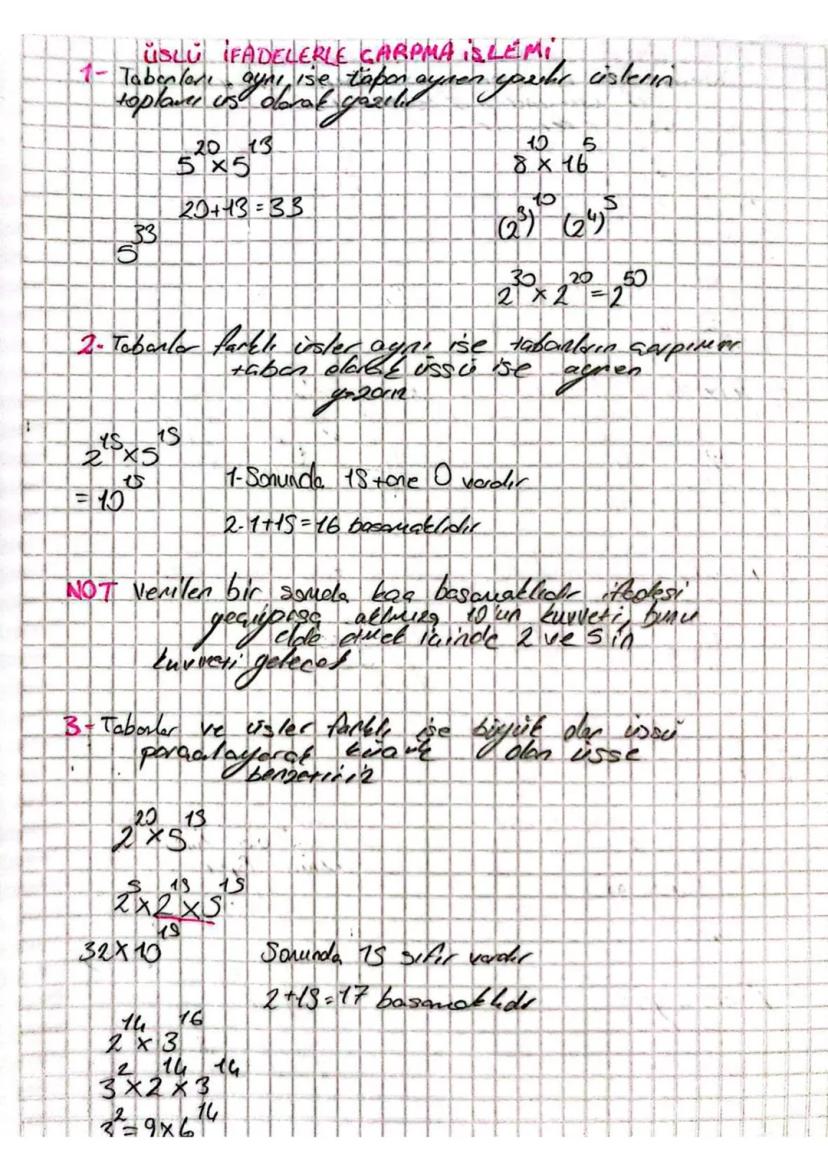 ÜSLÜ İFADELERLE ÇARPMA İŞLEMİ
1- Tabanları aynı ise taban aynen yazılır üslerin
toplamı üs olarak yazılır
5²⁰ x 5¹³
20+13=33
5³³
8¹⁰ x 16⁵
(2³)¹⁰ (2⁴)⁵
2³⁰ x 2²⁰ = 2⁵⁰
2- Tabanlar farklı üsler aynı ise tabanların çarpımını
taban olarak üssü ise aynen
yazarız
2¹⁵ x 5¹⁵
= 10¹⁵
1-Sonunda 15 tane 0 vardır
2-1+15=16 basamaklıdır
NOT Verilen bir soruda kaç basamaklıdır ifadesi
geçiyorsa aklımıza 10'un kuvveti, bunu
elde etmek içinde 2 ve 5 in
kuvveti gelecek
3- Tabanlar ve üsler farklı ise büyük olan üssü
parçalayarak küçük olan üsse
benzetiriz
2²⁰ x 5¹⁵
2⁵ x 2¹⁵ x 5¹⁵
32 x 10¹⁵
Sonunda 15 sıfır vardır
2+15=17 basamaklıdır
2¹⁴ x 3¹⁶
3² x 2¹⁴ x 3¹⁴
3² = 9 x 6¹⁴